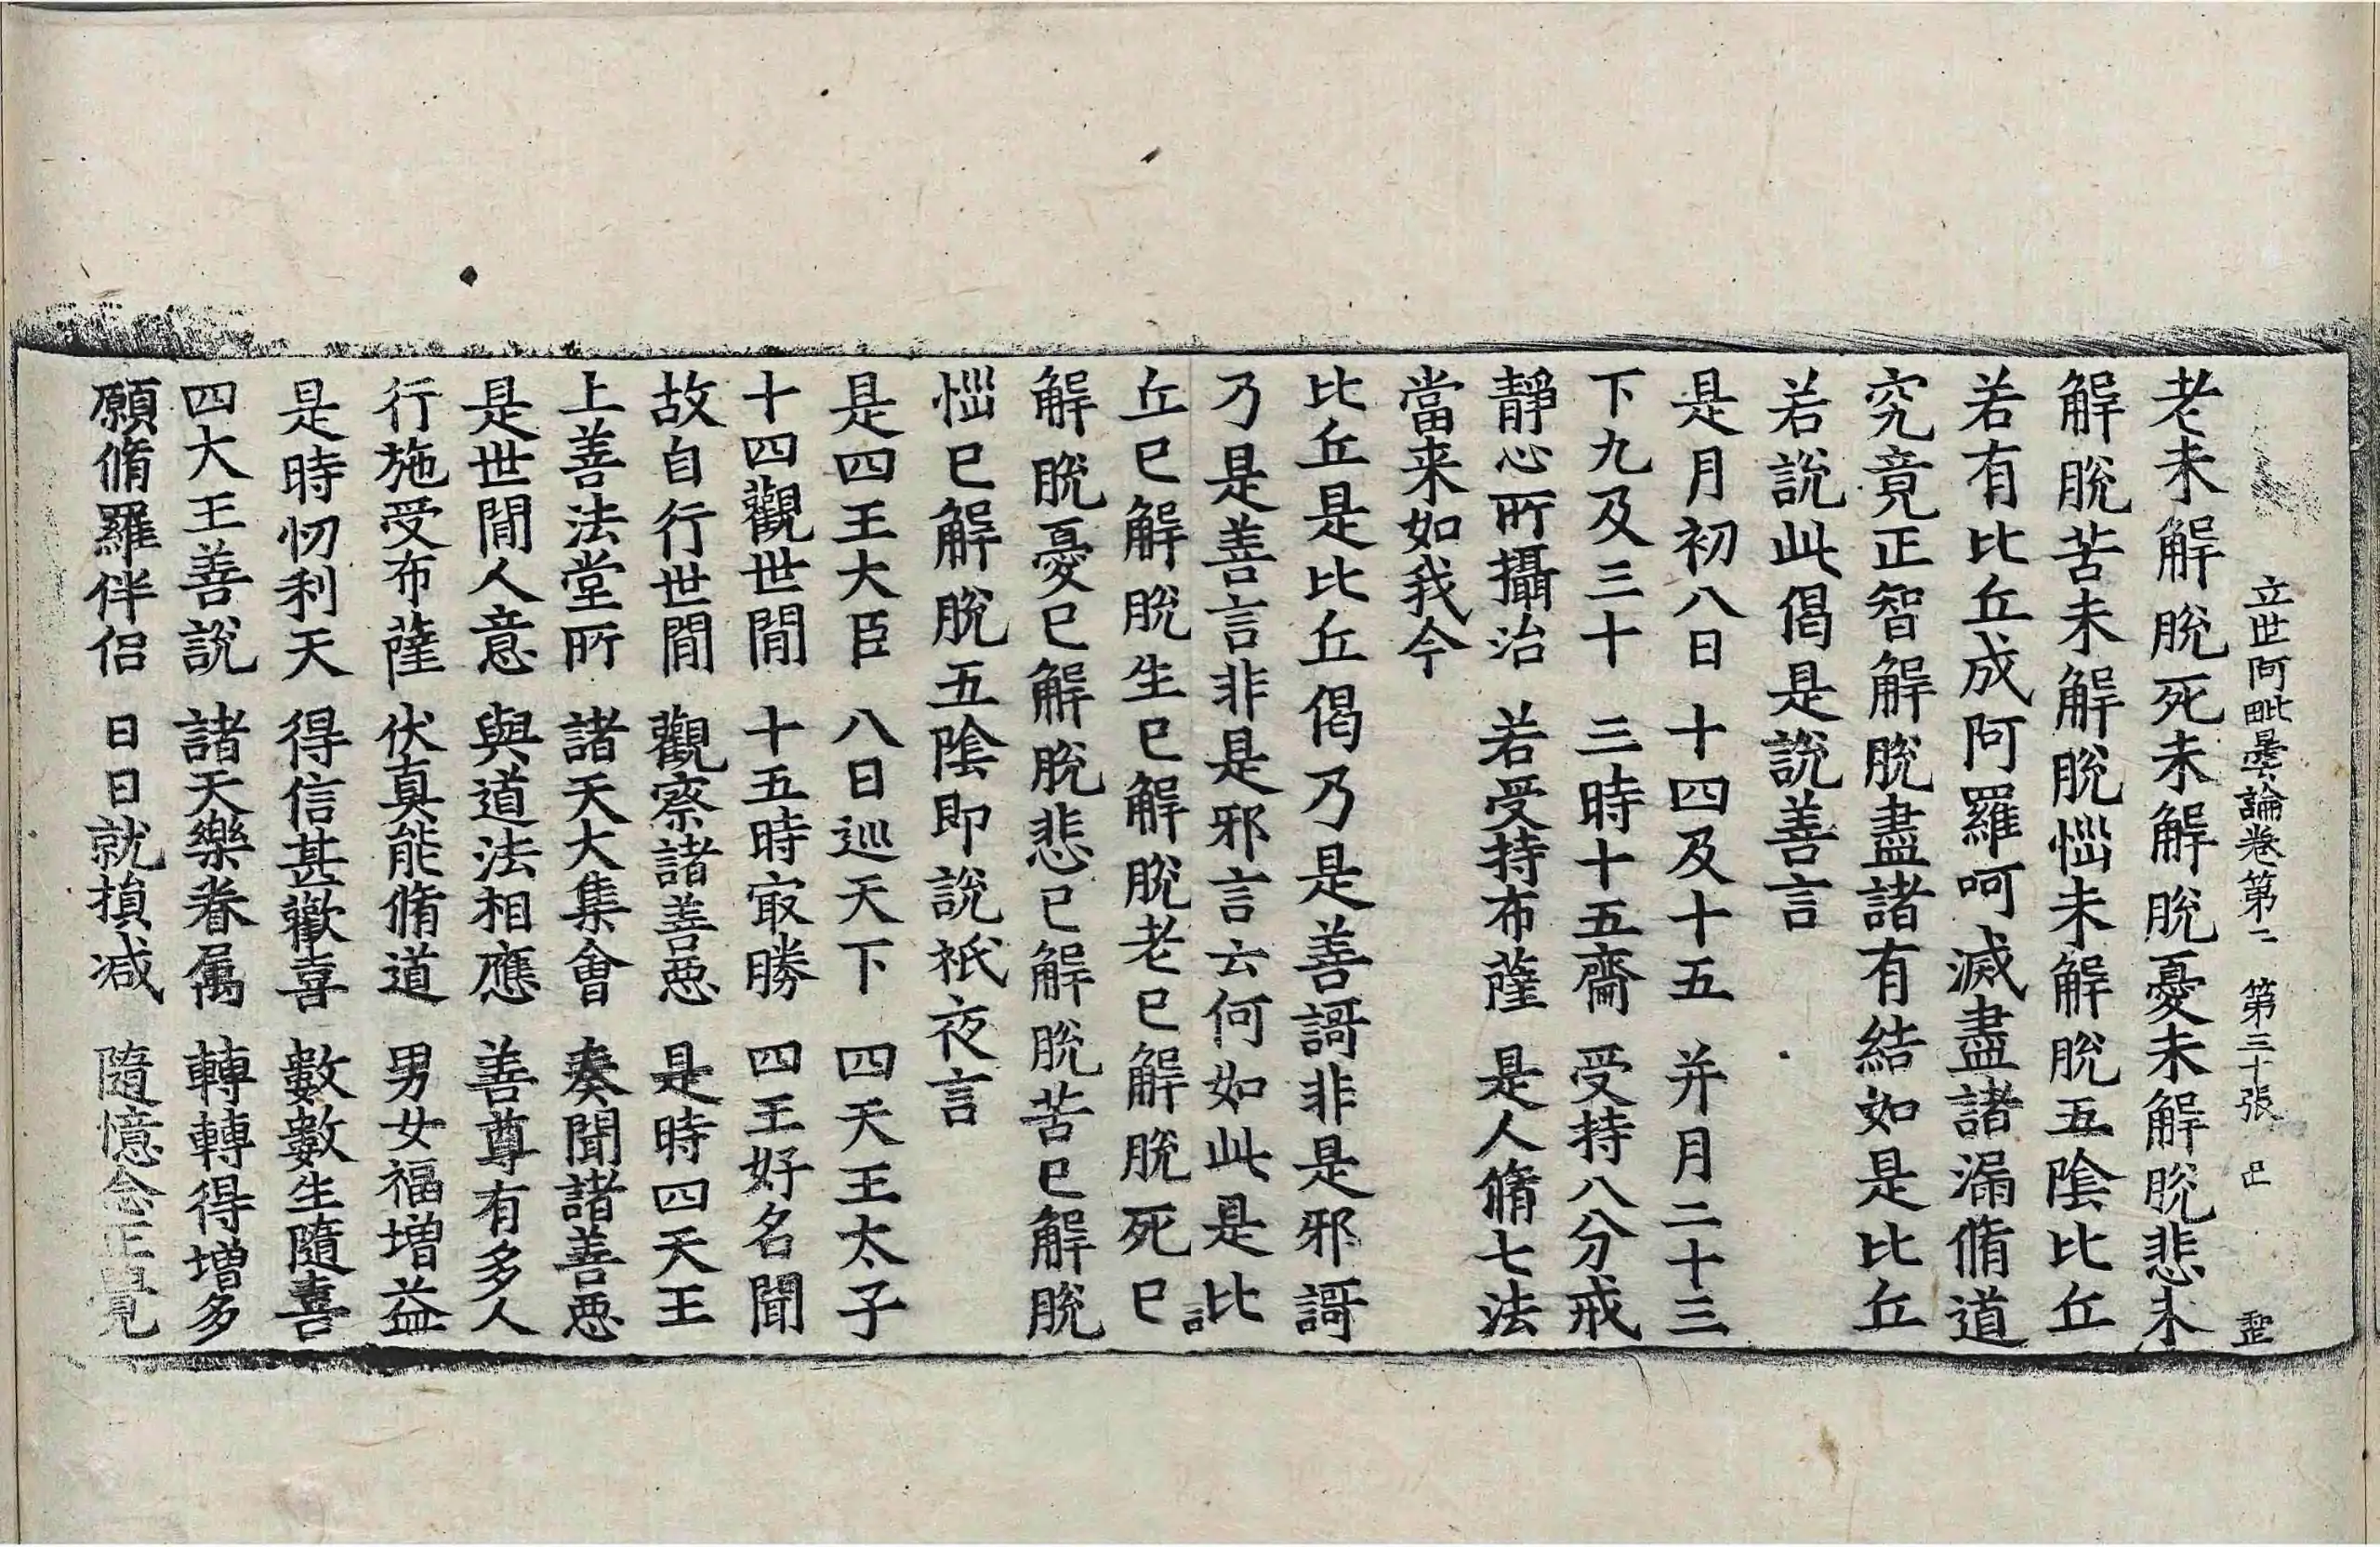 立世阿毗曇論卷第二 第三十張 
老未解脫死未解脫憂未解脫悲未
解脫苦未解脫惱未解脫五陰比丘
若有比丘成阿羅呵滅盡諸漏脩道
究竟正智解脫盡諸有結如是比丘
若說此偈是說善言
是月初八日 十四及十五 并月二十三
下九及三十 三時十五齋 受持八分戒
靜心所攝治 若受持布薩 是人脩七法
當来如我今
比丘是比丘偈乃是善謌非是邪謌
乃是善言非是邪言云何如此是比
丘已解脫生已解脫老已解脫死已
解脫憂已解脫悲已解脫苦已解脫
惱已解脫五陰即說祇夜言
是四王大臣 八日巡天下 四天王太子
十四觀世間 十五時冣勝 四王好名聞
故自行世間 觀察諸善惡 是時四天王
上善法堂所 諸天大集會 奏聞諸善惡
是世間人意 與道法相應 善尊有多人
行施受布薩 伏真能脩道 男女福增益
是時忉利天 得信甚歡喜 數數生隨喜
四大王善說 諸天樂眷属 轉轉得增多
願脩羅伴侶 日日就損减 隨憶念正覺